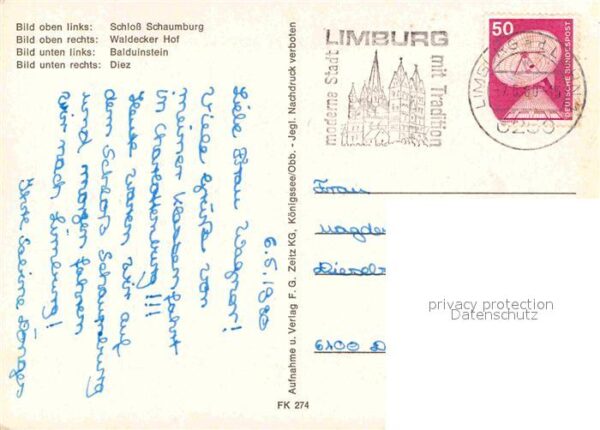 Bild oben links: Schloß Schaumburg
Bild oben rechts: Waldecker Hof
Bild unten links: Balduinstein
Bild unten rechts: Diez
6.5.1980
Liebe Frau Wagner!
Viele Grüße von
meiner Klassenfahrt
in Charlottenburg!!!
Heute waren wir auf
dem Schloß Schaumburg
und morgen fahren
wir nach Limburg!
Ihre Sabine
Aufnahme u. Verlag F. G. Zeitz KG, Königssee/Obb. - Jegl. Nachdruck verboten
FK 274
LIMBURG
moderne Stadt
mit Tradition
50
DEUTSCHE BUNDESPOST
LIMBURG
6250
Frau
Magde
Diesel
6100 D
privacy protection
Datenschutz